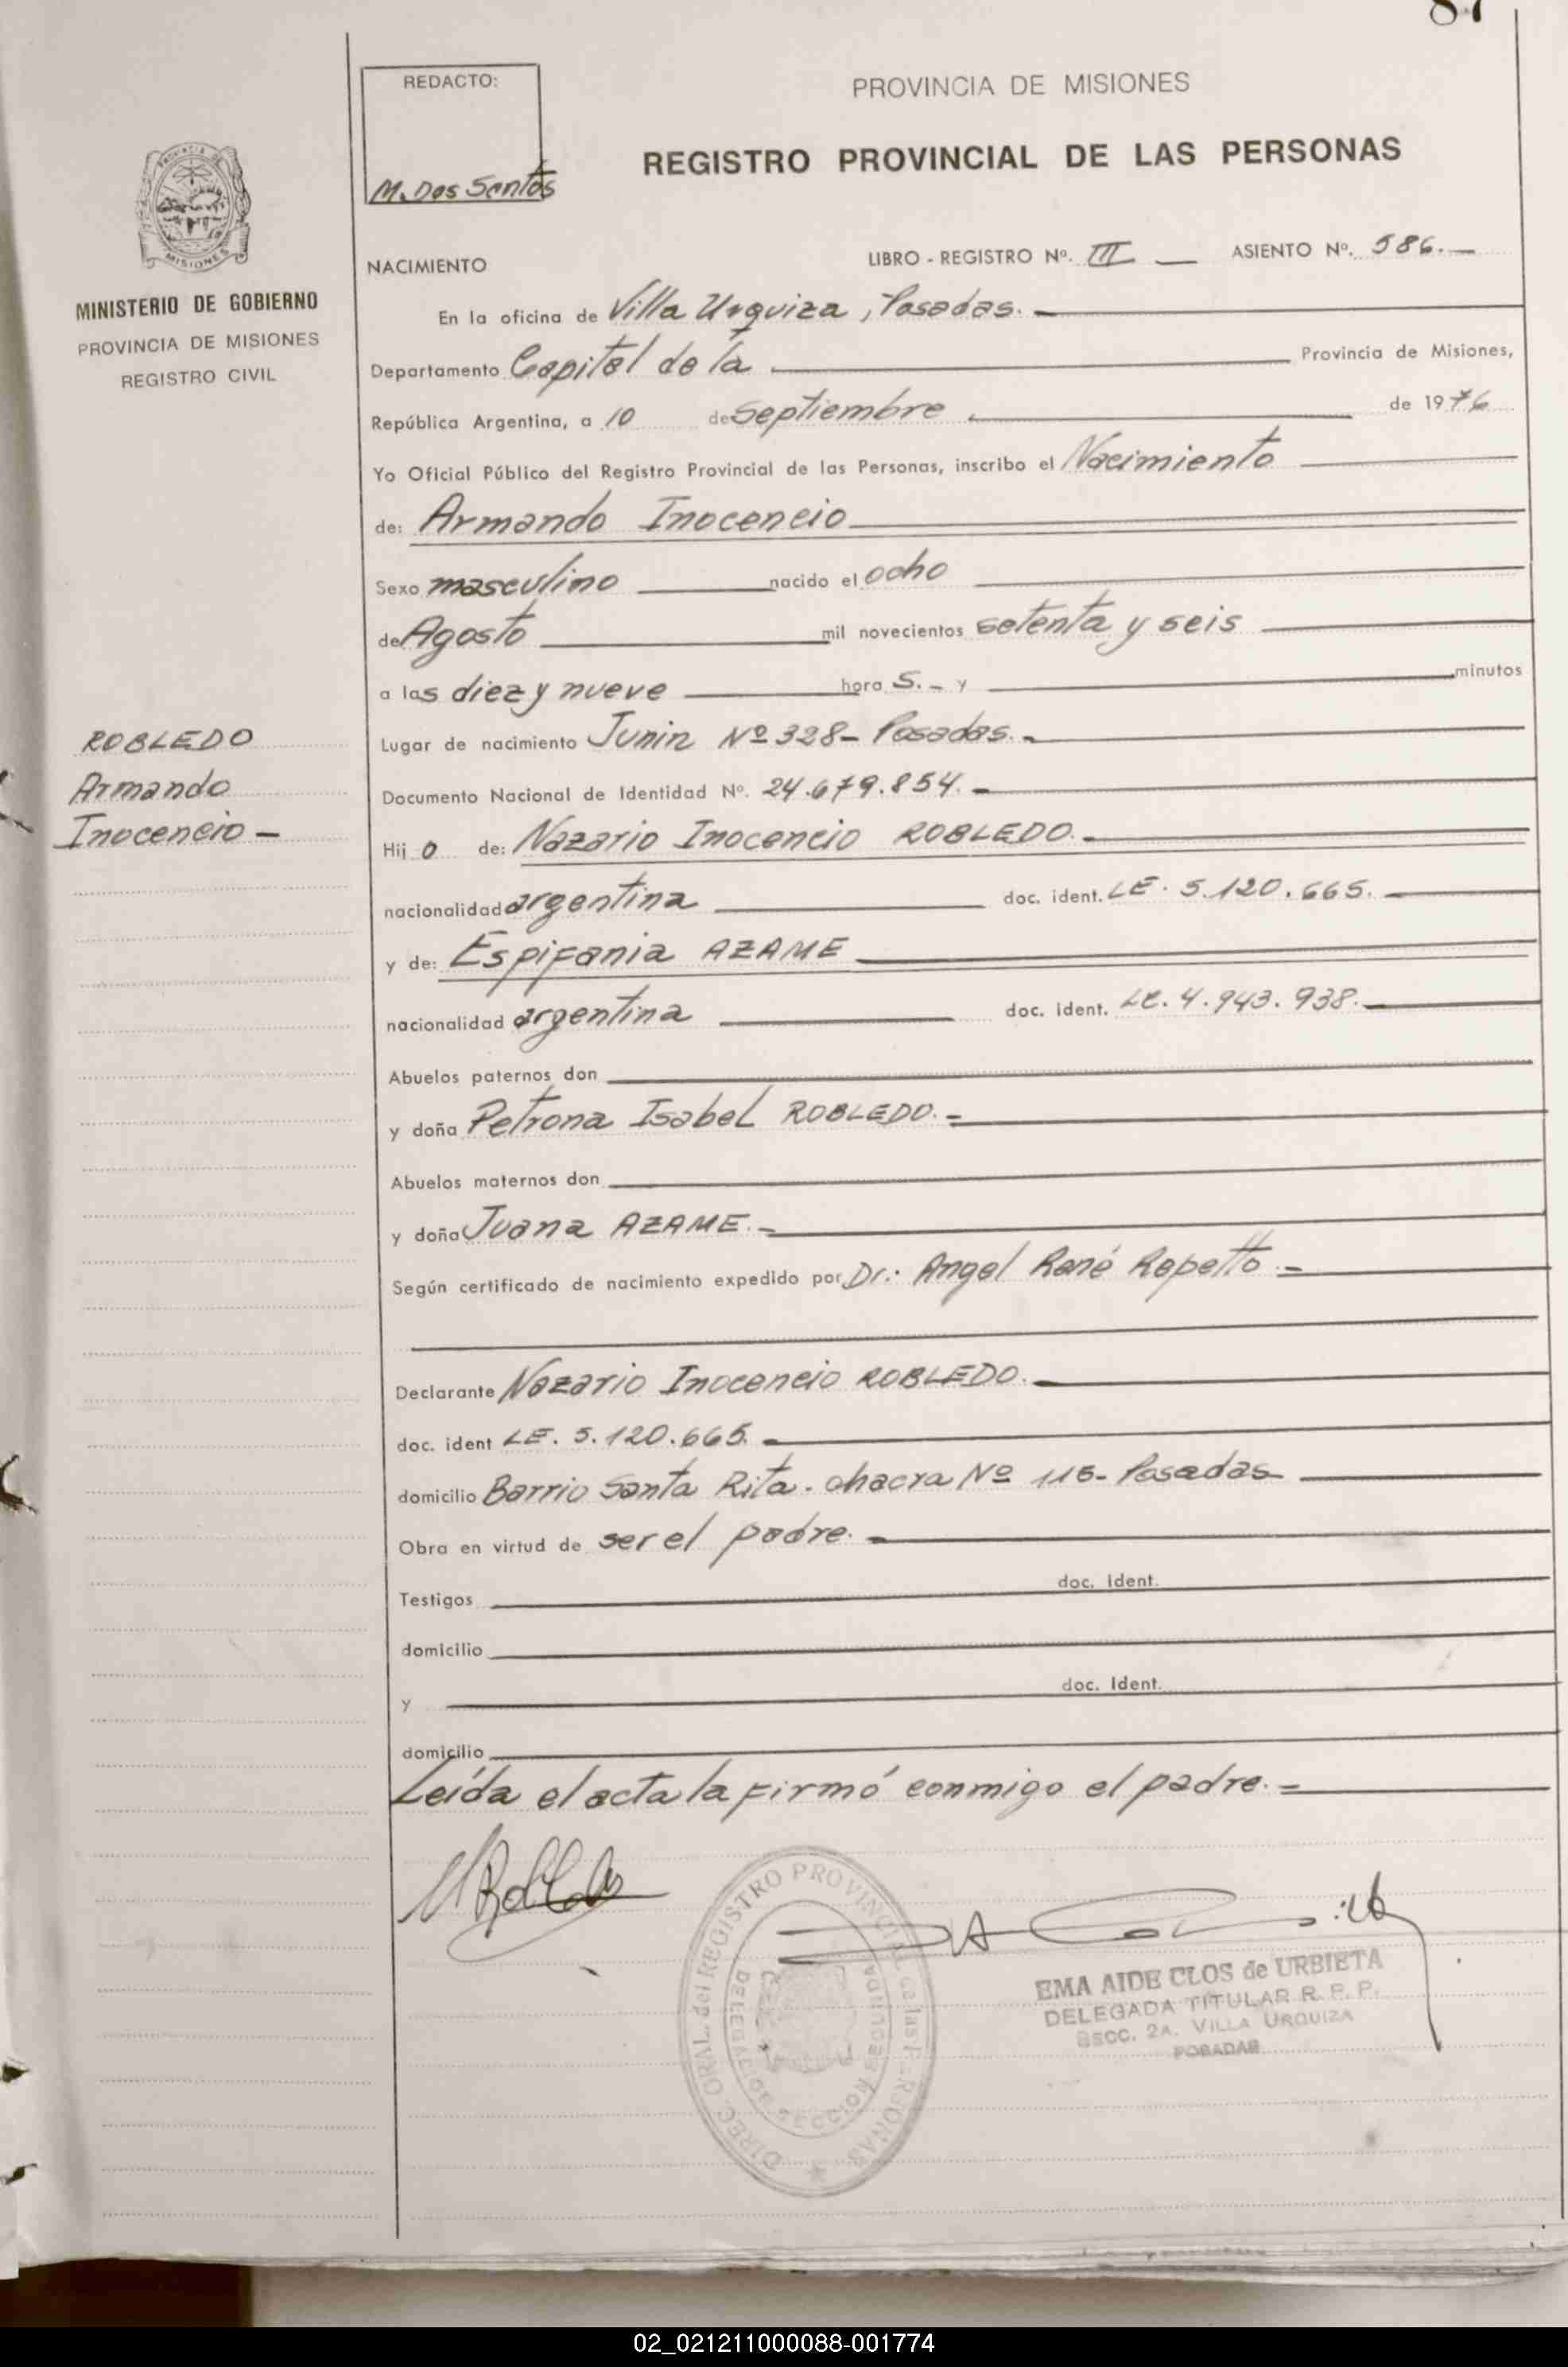 87
REDACTO:
M. Dos Santos
PROVINCIA DE MISIONES
REGISTRO PROVINCIAL DE LAS PERSONAS
PROVINCIA DE
MISIONES
MINISTERIO DE GOBIERNO
PROVINCIA DE MISIONES
REGISTRO CIVIL
NACIMIENTO
LIBRO - REGISTRO Nº. III — ASIENTO Nº. 586.—
En la oficina de Villa Urquiza, Posadas.—
Departamento Capital de la Provincia de Misiones,
República Argentina, a 10 de Septiembre de 1976
Yo Oficial Público del Registro Provincial de las Personas, inscribo el Nacimiento
de: Armando Inocencio
Sexo masculino nacido el ocho
de Agosto mil novecientos setenta y seis
a las diez y nueve hora s.- y minutos
Lugar de nacimiento Junin Nº 328- Posadas.-
Documento Nacional de Identidad Nº. 24.679.854.-
ROBLEDO
Armando
Inocencio -
Hij o de: Nazario Inocencio ROBLEDO.-
nacionalidad argentina doc. ident. LE. 5.120.665.
y de: Espifania AZAME
nacionalidad argentina doc. ident. LC. 4.943.938.
Abuelos paternos don
y doña Petrona Isabel ROBLEDO.-
Abuelos maternos don
y doña Juana AZAME.-
Según certificado de nacimiento expedido por Dr.: Angel René Repetto.-
Declarante Nazario Inocencio ROBLEDO.
doc. ident LE. 5.120.665.
domicilio Barrio Santa Rita. chacra Nº 115- Posadas
Obra en virtud de ser el padre.-
Testigos doc. Ident.
domicilio
y doc. Ident.
domicilio
Leída el acta la firmó conmigo el padre.-
NRobledo
DIREC. GRAL. del REGISTRO PROVINCIAL de las PERSONAS
SECCION SEGUNDA
EMA AIDE CLOS de URBIETA
DELEGADA TITULAR R. P. P.
SECC. 2A. VILLA URQUIZA
POSADAS
02_021211000088-001774